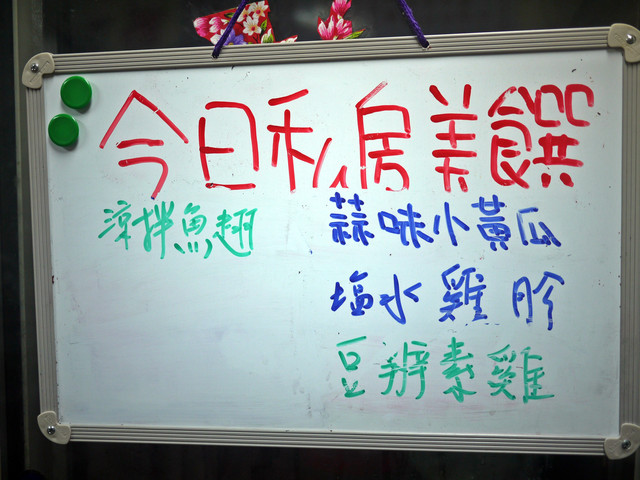 今日私房美饌
涼拌魚翅
蒜味小黃瓜
塩水雞胗
豆瓣素雞